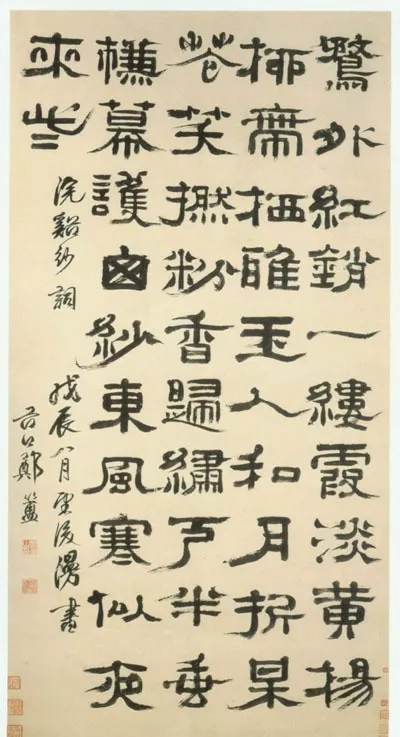 鶩外紅銷一縷霞淡黃楊
柳帶栖雅玉人和月折呆
花笑撚粉香歸繡戶半垂
槏幕護囱紗東風寒似夜
來些
浣谿紗詞 戊辰八月望後漫書
谷口鄭簠